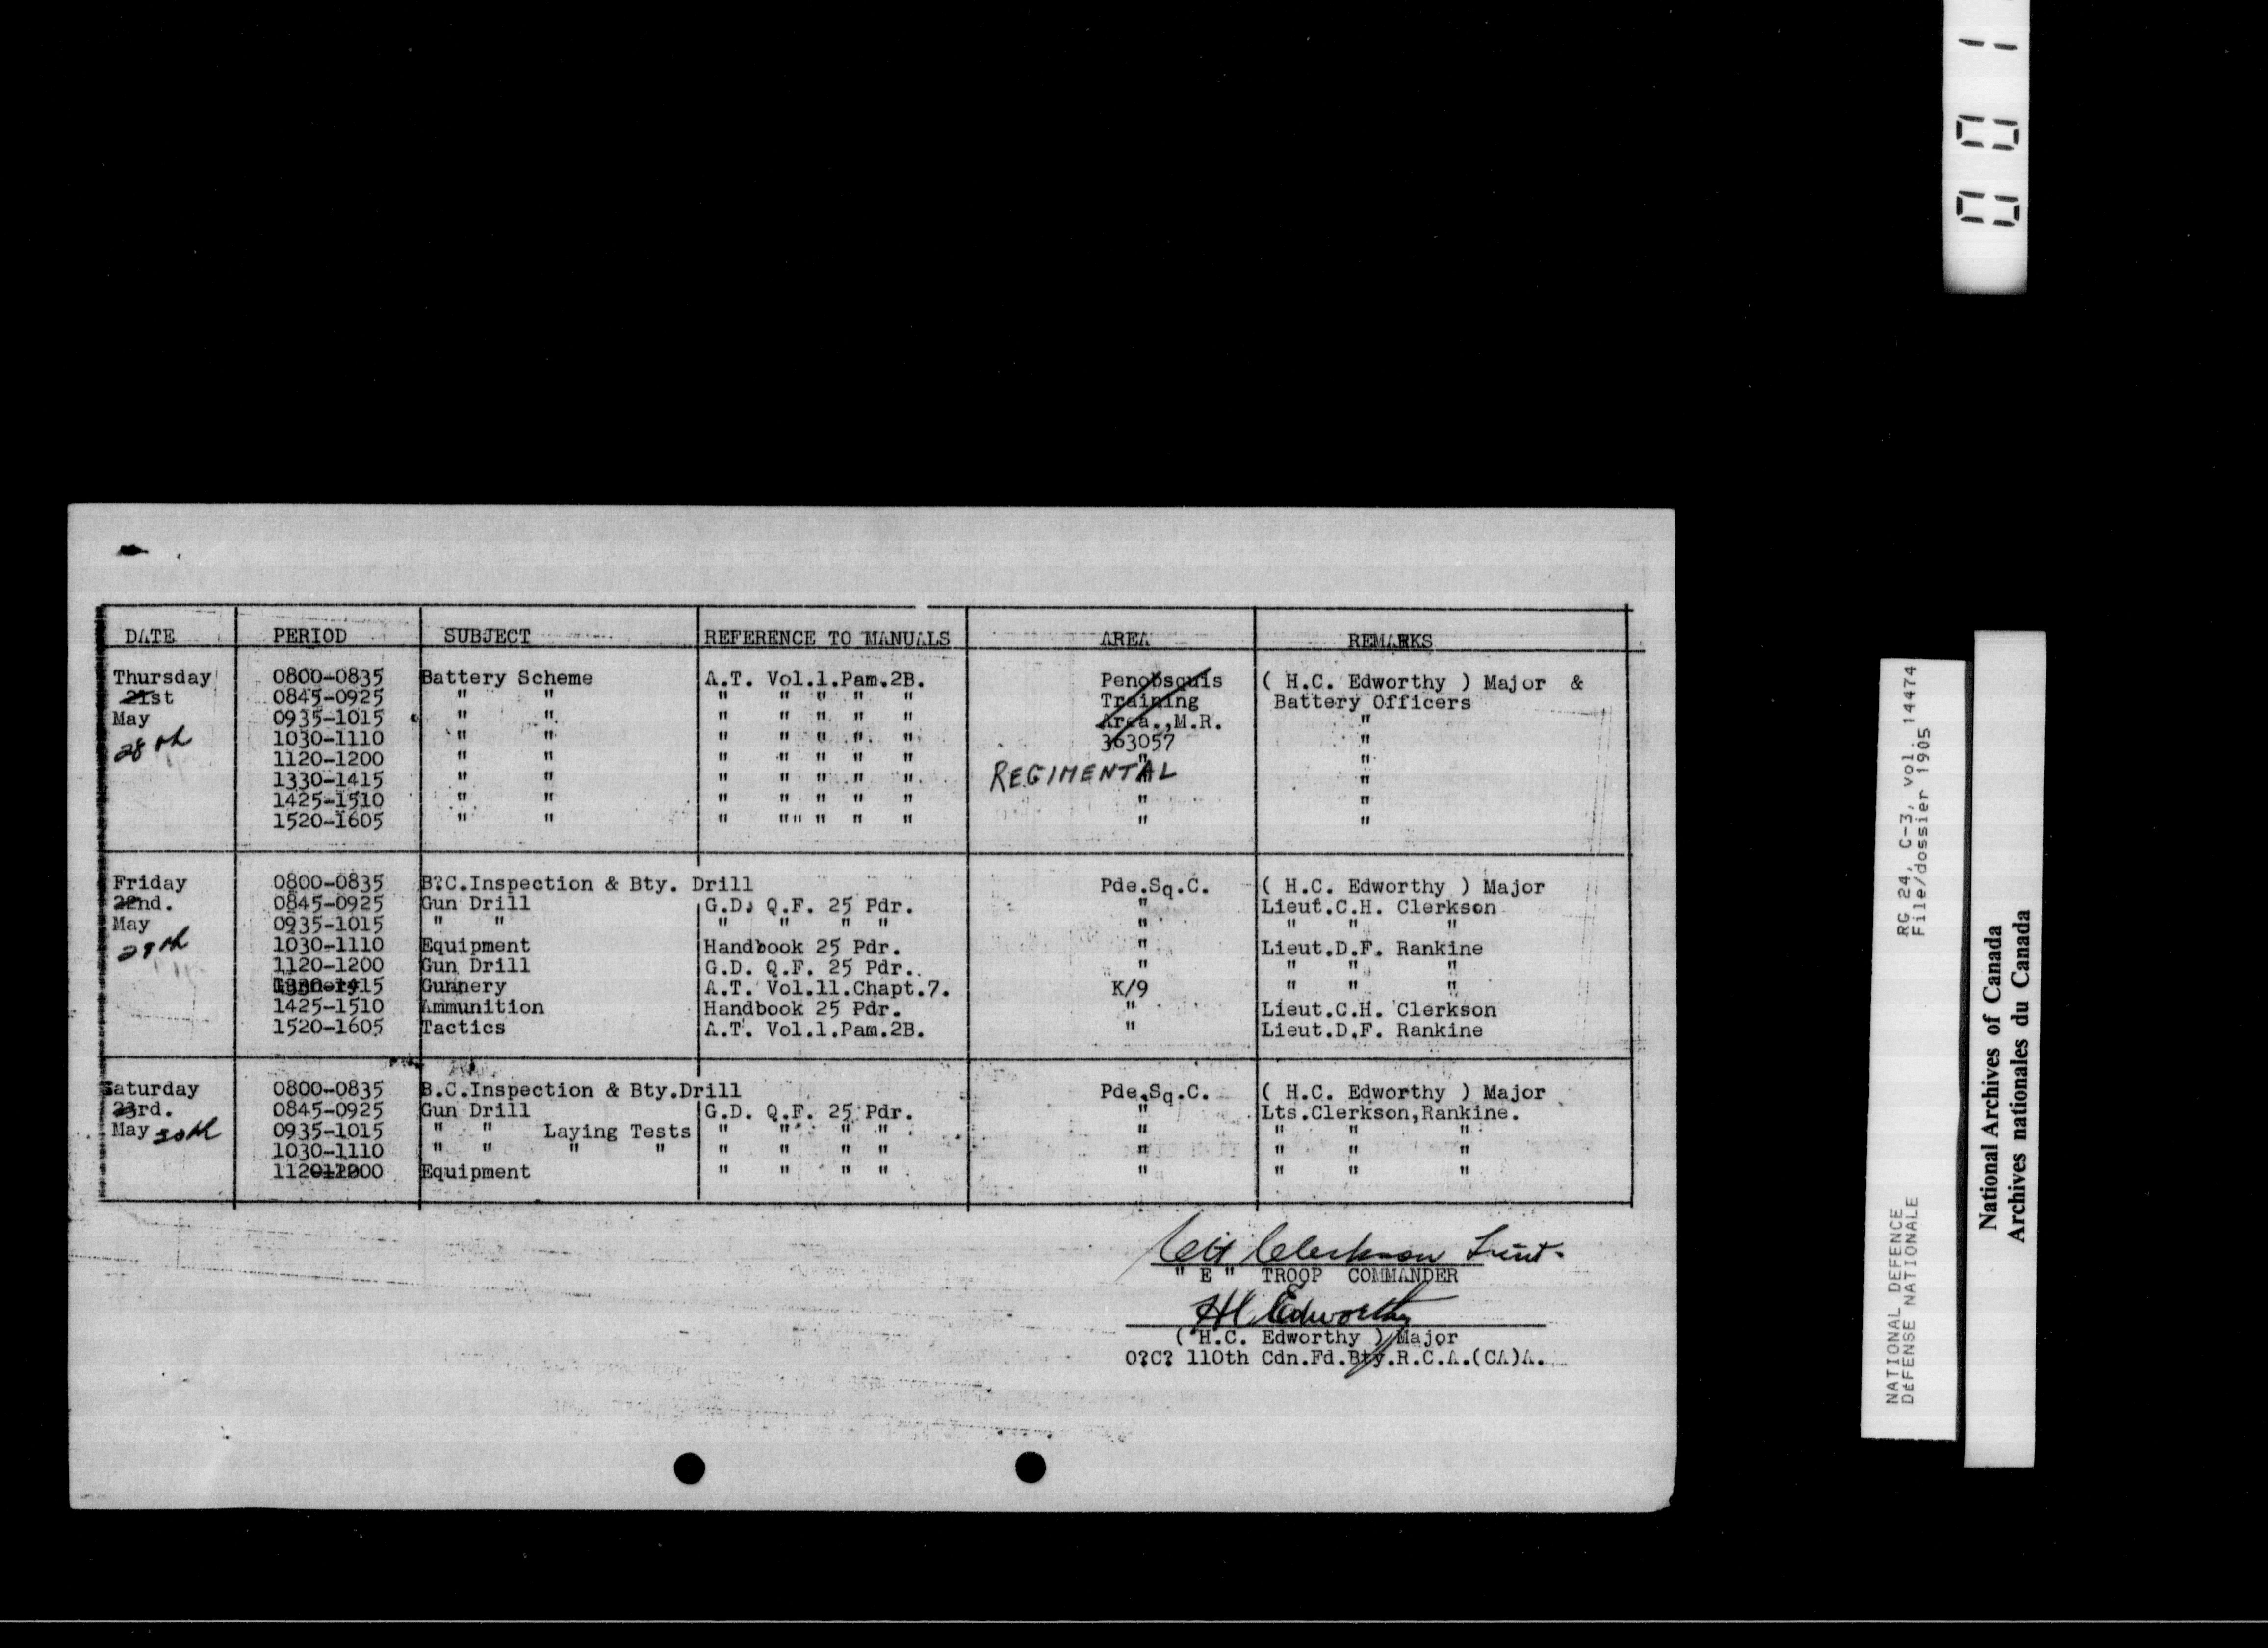 DATE PERIOD SUBJECT REFERENCE TO MANUALS AREA REMARKS
Thursday 0800-0835 Battery Scheme A.T. Vol.1.Pam.2B. Penobsquis ( H.C. Edworthy ) Major &
21st 0845-0925 " " " " " " " Training Battery Officers
May 0935-1015 " " " " " " " Area.,M.R. "
28th 1030-1110 " " " " " " " 363057 "
1120-1200 " " " " " " " " "
1330-1415 " " " " " " " REGIMENTAL " "
1425-1510 " " " " " " " " "
1520-1605 " " " "" " " " " "
Friday 0800-0835 B?C.Inspection & Bty. Drill Pde.Sq.C. ( H.C. Edworthy ) Major
22nd. 0845-0925 Gun Drill G.D. Q.F. 25 Pdr. " Lieut.C.H. Clerkson
May 0935-1015 " " " " " " " " " "
29th 1030-1110 Equipment Handbook 25 Pdr. " Lieut.D.F. Rankine
1120-1200 Gun Drill G.D. Q.F. 25 Pdr. " " " "
1330-1415 Gunnery A.T. Vol.11.Chapt.7. K/9 " " "
1425-1510 Ammunition Handbook 25 Pdr. " Lieut.C.H. Clerkson
1520-1605 Tactics A.T. Vol.1.Pam.2B. " Lieut.D.F. Rankine
Saturday 0800-0835 B.C.Inspection & Bty.Drill Pde.Sq.C. ( H.C. Edworthy ) Major
23rd. 0845-0925 Gun Drill G.D. Q.F. 25 Pdr. " Lts.Clerkson,Rankine.
May 30th 0935-1015 " " Laying Tests " " " " " " " "
1030-1110 " " " " " " " " " " " "
1120-1200 Equipment " " " " " " " "
CH Clerkson Lieut.
" E " TROOP COMMANDER
HC Edworthy
( H.C. Edworthy ) Major
O?C? 110th Cdn.Fd.Bty.R.C.A.(CA)A.
001
RG 24, C-3, vol. 14474
File/dossier 1905
NATIONAL DEFENCE
DÉFENSE NATIONALE
National Archives of Canada
Archives nationales du Canada